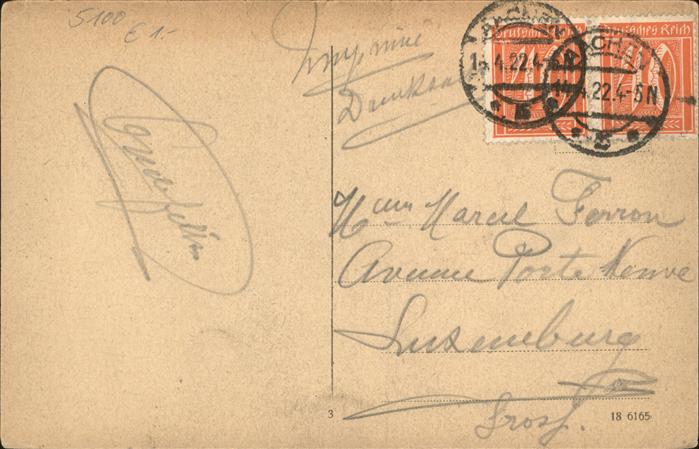 5100
€ 1.-
Imprimé
Drucksa
Deutsches Reich
Deutsches Reich
AACHEN
1 . 4.22.4-5N
AACHEN
4.22.4-5N
Marcel Ferron
Avenue Porte Neuve
Luxemburg
Grosh.
3
18 6165